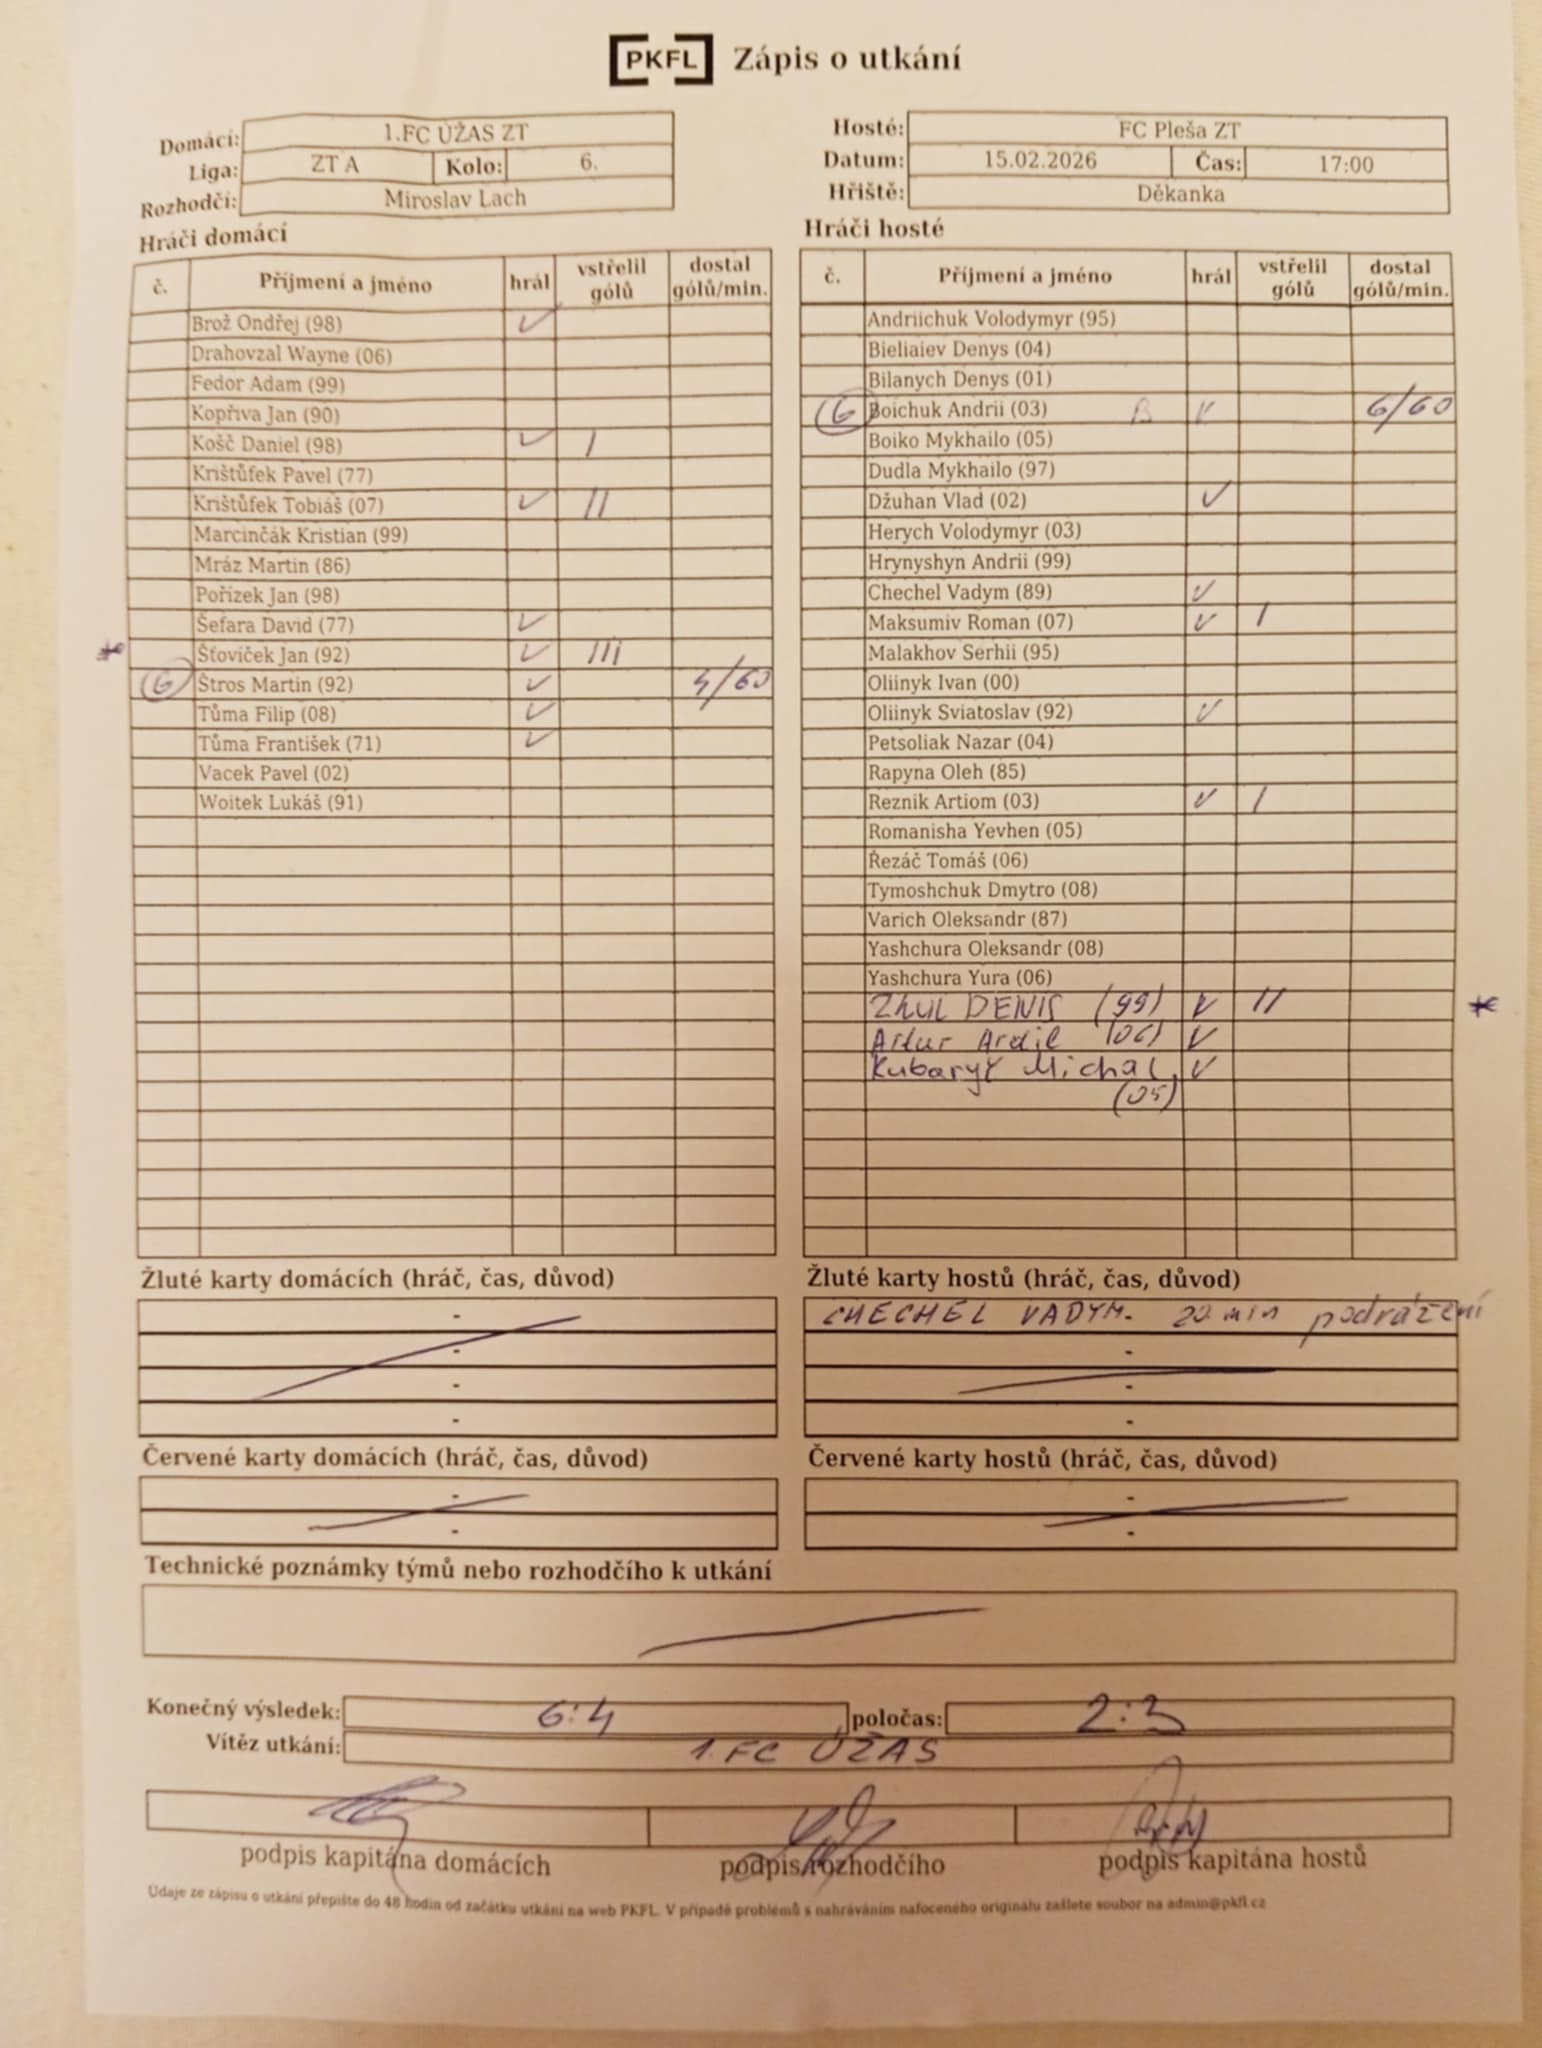 PKFL Zápis o utkání
Domácí: 1.FC ÚŽAS ZT
Liga: ZT A Kolo: 6.
Rozhodčí: Miroslav Lach
Hosté: FC Pleša ZT
Datum: 15.02.2026 Čas: 17:00
Hřiště: Děkanka
Hráči domácí
č. Příjmení a jméno hrál vstřelil gólů dostal gólů/min.
Brož Ondřej (98) ✓
Drahovzal Wayne (06)
Fedor Adam (99)
Kopřiva Jan (90)
Košč Daniel (98) ✓ I
Krištůfek Pavel (77)
Krištůfek Tobiáš (07) ✓ II
Marcinčák Kristian (99)
Mráz Martin (86)
Pořízek Jan (98)
Šefara David (77) ✓
* Šťovíček Jan (92) ✓ III
G Štros Martin (92) ✓ 4/60
Tůma Filip (08) ✓
Tůma František (71) ✓
Vacek Pavel (02)
Woitek Lukáš (91)
Hráči hosté
č. Příjmení a jméno hrál vstřelil gólů dostal gólů/min.
Andriichuk Volodymyr (95)
Bieliaiev Denys (04)
Bilanych Denys (01)
G Boichuk Andrii (03) B ✓ 6/60
Boiko Mykhailo (05)
Dudla Mykhailo (97)
Džuhan Vlad (02) ✓
Herych Volodymyr (03)
Hrynyshyn Andrii (99)
Chechel Vadym (89) ✓
Maksumiv Roman (07) ✓ I
Malakhov Serhii (95)
Oliinyk Ivan (00)
Oliinyk Sviatoslav (92) ✓
Petsoliak Nazar (04)
Rapyna Oleh (85)
Reznik Artiom (03) ✓ I
Romanisha Yevhen (05)
Řezáč Tomáš (06)
Tymoshchuk Dmytro (08)
Varich Oleksandr (87)
Yashchura Oleksandr (08)
Yashchura Yura (06)
Zhul DENIS (99) ✓ II *
Artur Ardil (06) ✓
Kubaryč Michal ✓
(05)
Žluté karty domácích (hráč, čas, důvod)
-
-
-
-
Žluté karty hostů (hráč, čas, důvod)
CHECHEL VADYM - 20 min podrážení
-
-
-
Červené karty domácích (hráč, čas, důvod)
-
-
Červené karty hostů (hráč, čas, důvod)
-
-
Technické poznámky týmů nebo rozhodčího k utkání
Konečný výsledek: 6:4 poločas: 2:3
Vítěz utkání: 1. FC ÚŽAS
podpis kapitána domácích podpis rozhodčího podpis kapitána hostů
Údaje ze zápisu o utkání přepište do 48 hodin od začátku utkání na web PKFL. V případě problémů s nahráváním nafoceného originálu zašlete soubor na admin@pkfl.cz